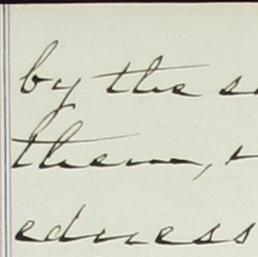 by the s
them,
edness